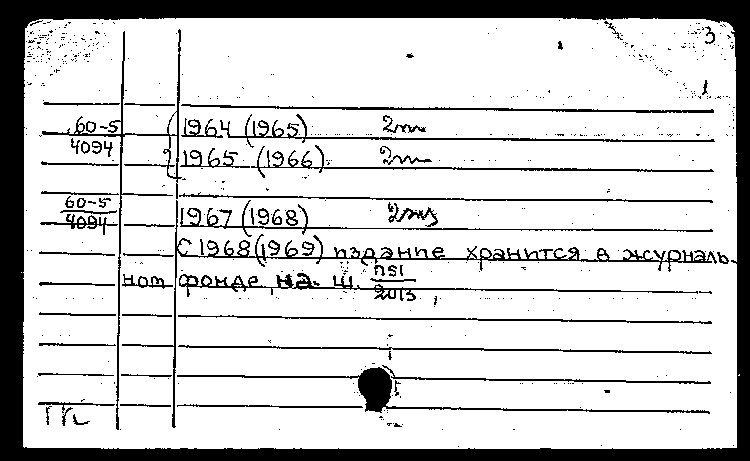 3
1
60-5
4094
1964 (1965) 2 
1965 (1966) 2 
60-5
4094
1967 (1968) 2 экз
С 1968 (1969) издание хранится в журналь-
ном фонде на ш. П51
2013